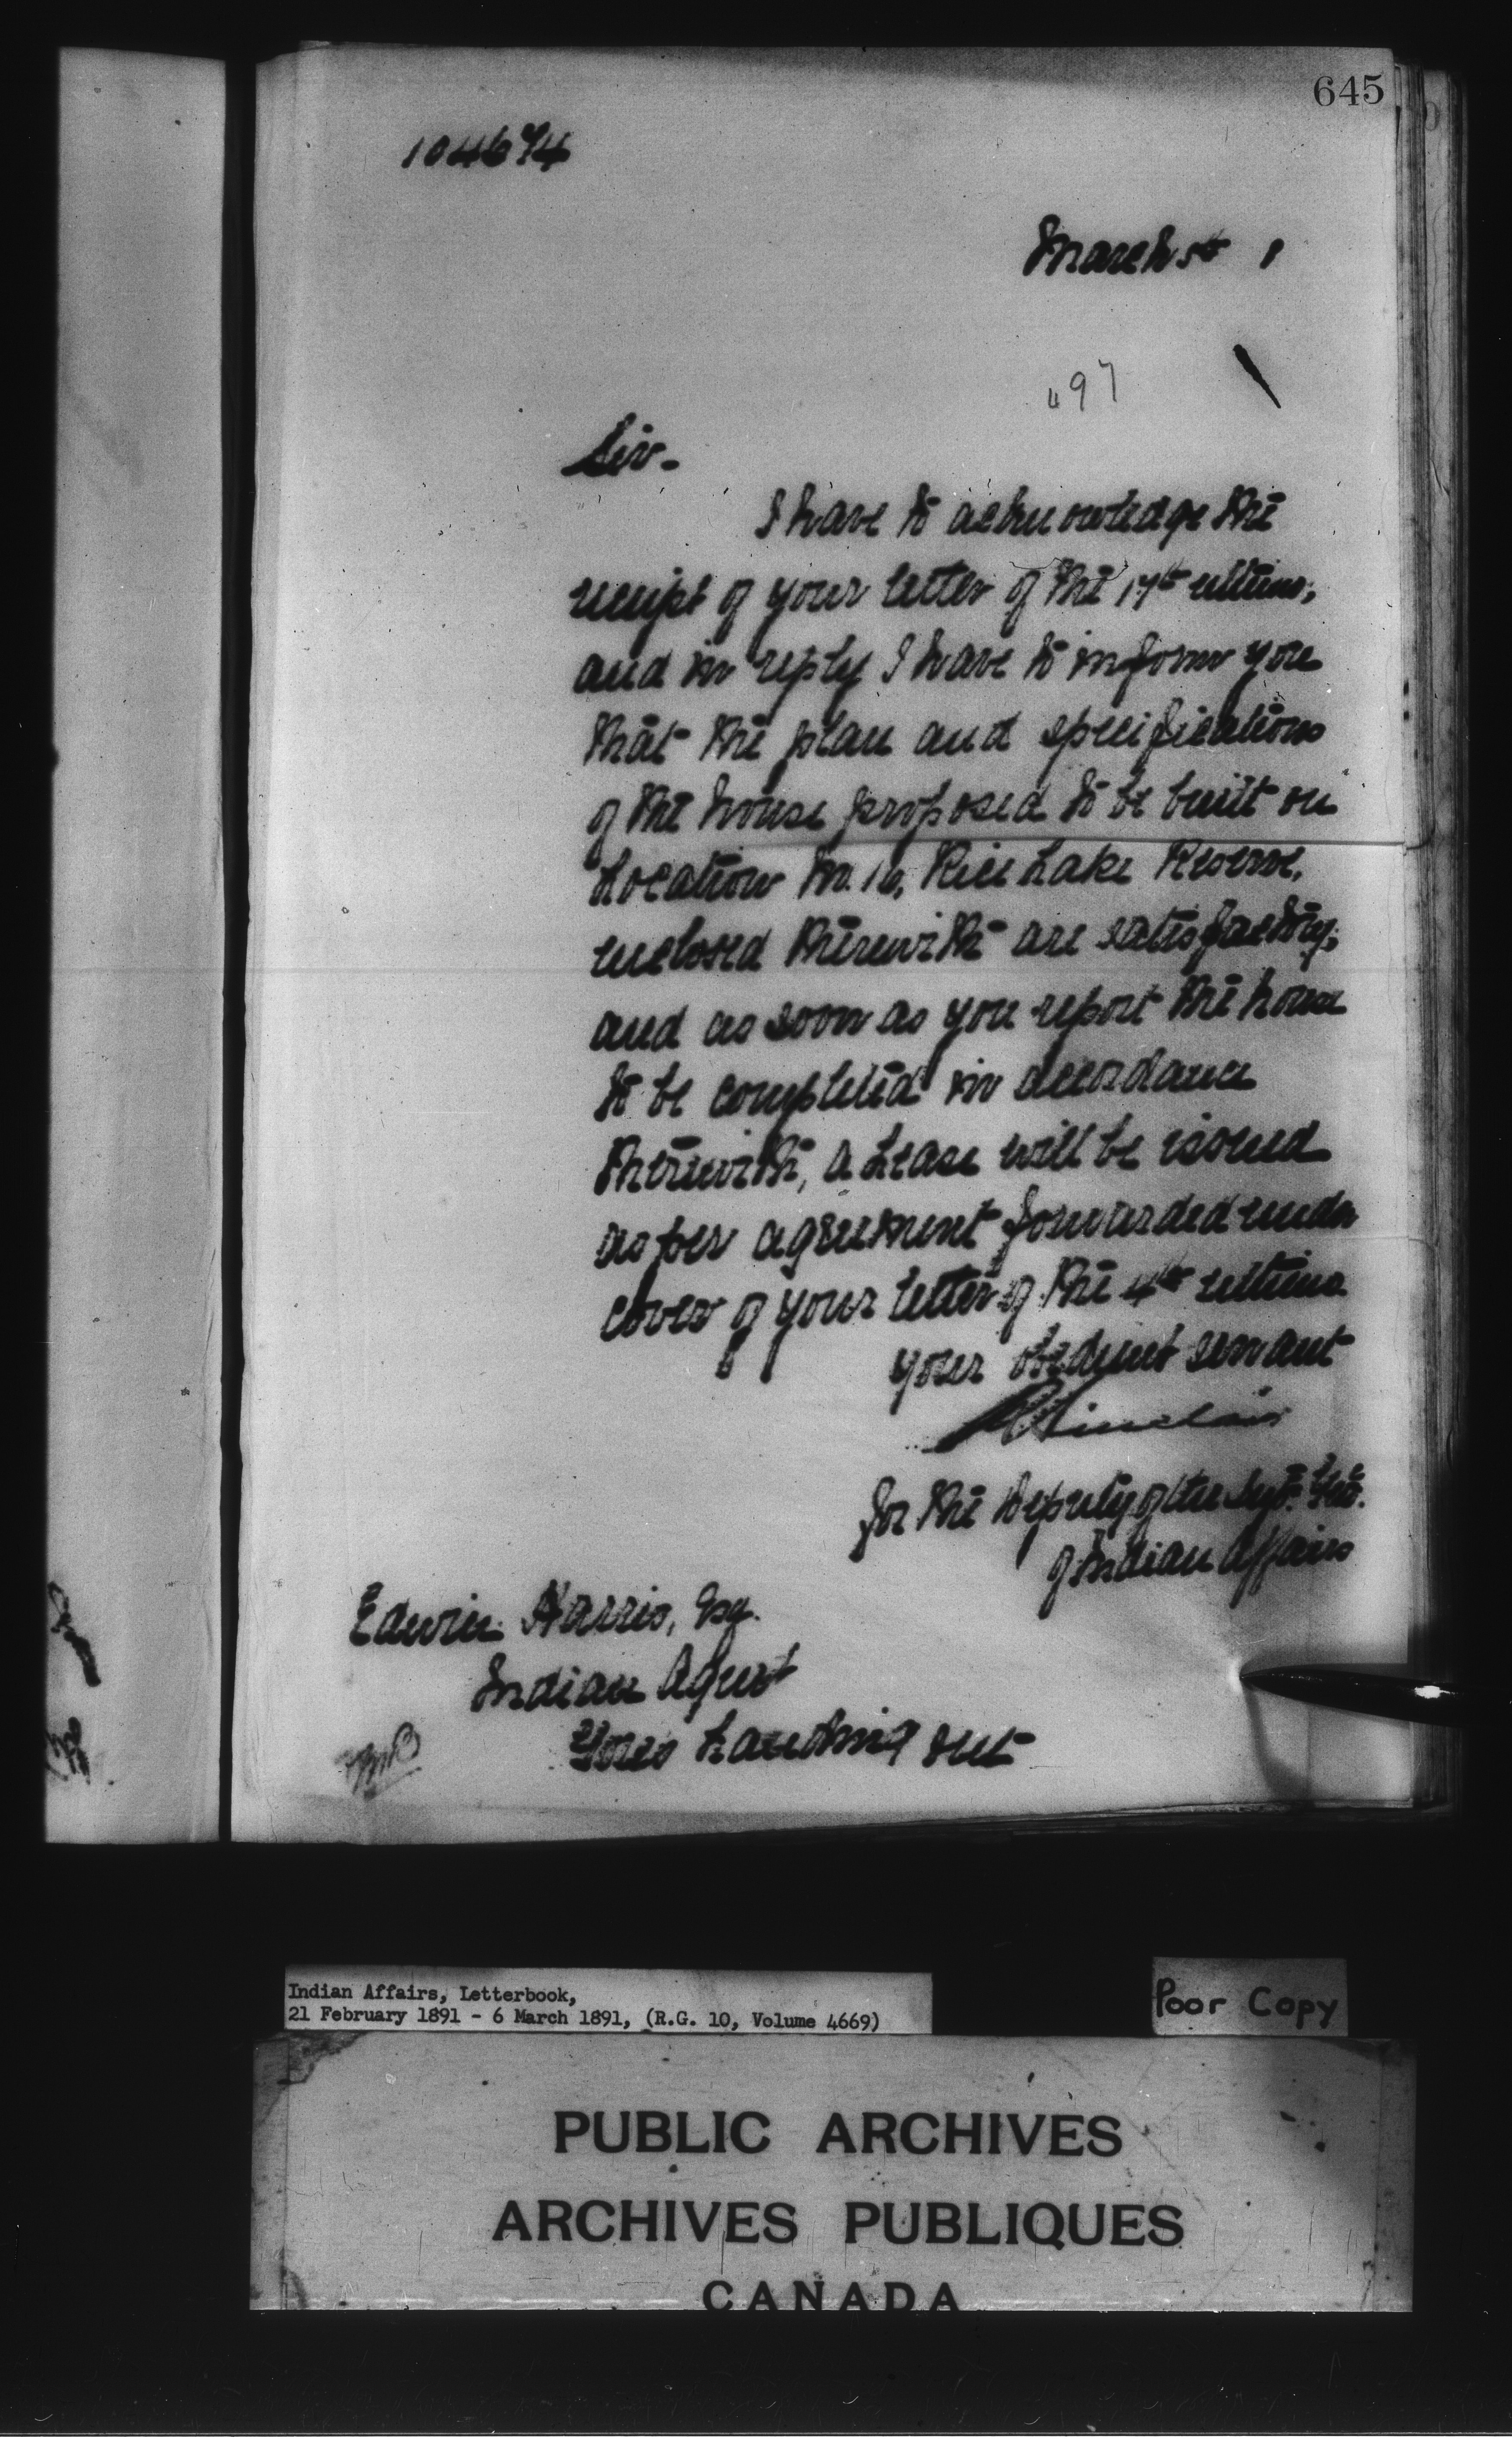 645
104674
March 5th 1
497
Sir.
I have to acknowledge the
receipt of your letter of the 17th ultimo,
and in reply I have to inform you
that the plan and specifications
of the house proposed to be built on
Location No. 16, Rice Lake Reserve,
enclosed therewith are satisfactory;
and as soon as you report the house
to be completed in accordance
therewith, a Lease will be issued
as per agreement forwarded under
cover of your letter of the 4th ultimo
your obedient servant
Sinclair
for the Deputy of the Supt. Genl.
of Indian Affairs
Edwin Harris, Esq.
Indian Agent
Gores Landing Ont
Indian Affairs, Letterbook,
21 February 1891 - 6 March 1891, (R.G. 10, Volume 4669)
Poor Copy
PUBLIC ARCHIVES
ARCHIVES PUBLIQUES
CANADA